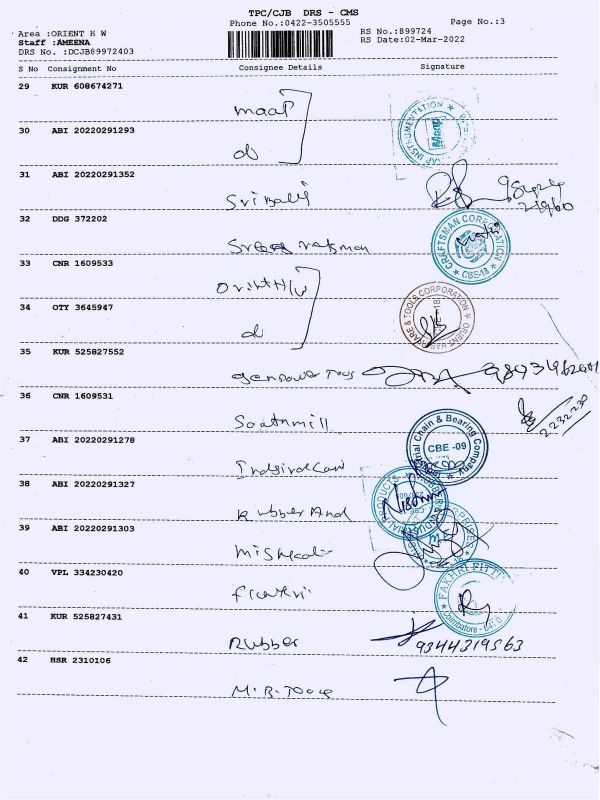 TPC/CJB DRS - CMS
Phone No.:0422-3505555
Page No.:3
Area :ORIENT H W
RS No.:899724
Staff :AMEENA
RS Date:02-Mar-2022
DRS No. :DCJB89972403
S No Consignment No Consignee Details Signature
29 KUR 608674271
maap
INSTRUMENTATION
Maap
30 ABI 20220291293
do
31 ABI 20220291352
Sri Balaji
32 DDG 372202
CRAFTSMAN CORPORATION
CBE-18
33 CNR 1609533
Orient H/W
34 OTY 3645947
do
HARDWARE & TOOLS CORPORATION
ORIENT
35 KUR 525827552
36 CNR 1609531
2232230
37 ABI 20220291278
Chain & Bearing Company
CBE -09
38 ABI 20220291327
Rubber And
39 ABI 20220291303
40 VPL 334230420
FAKHRI FITT
Coimbatore
41 KUR 525827431
Rubber
9344319563
42 HSR 2310106
M.R. Tools